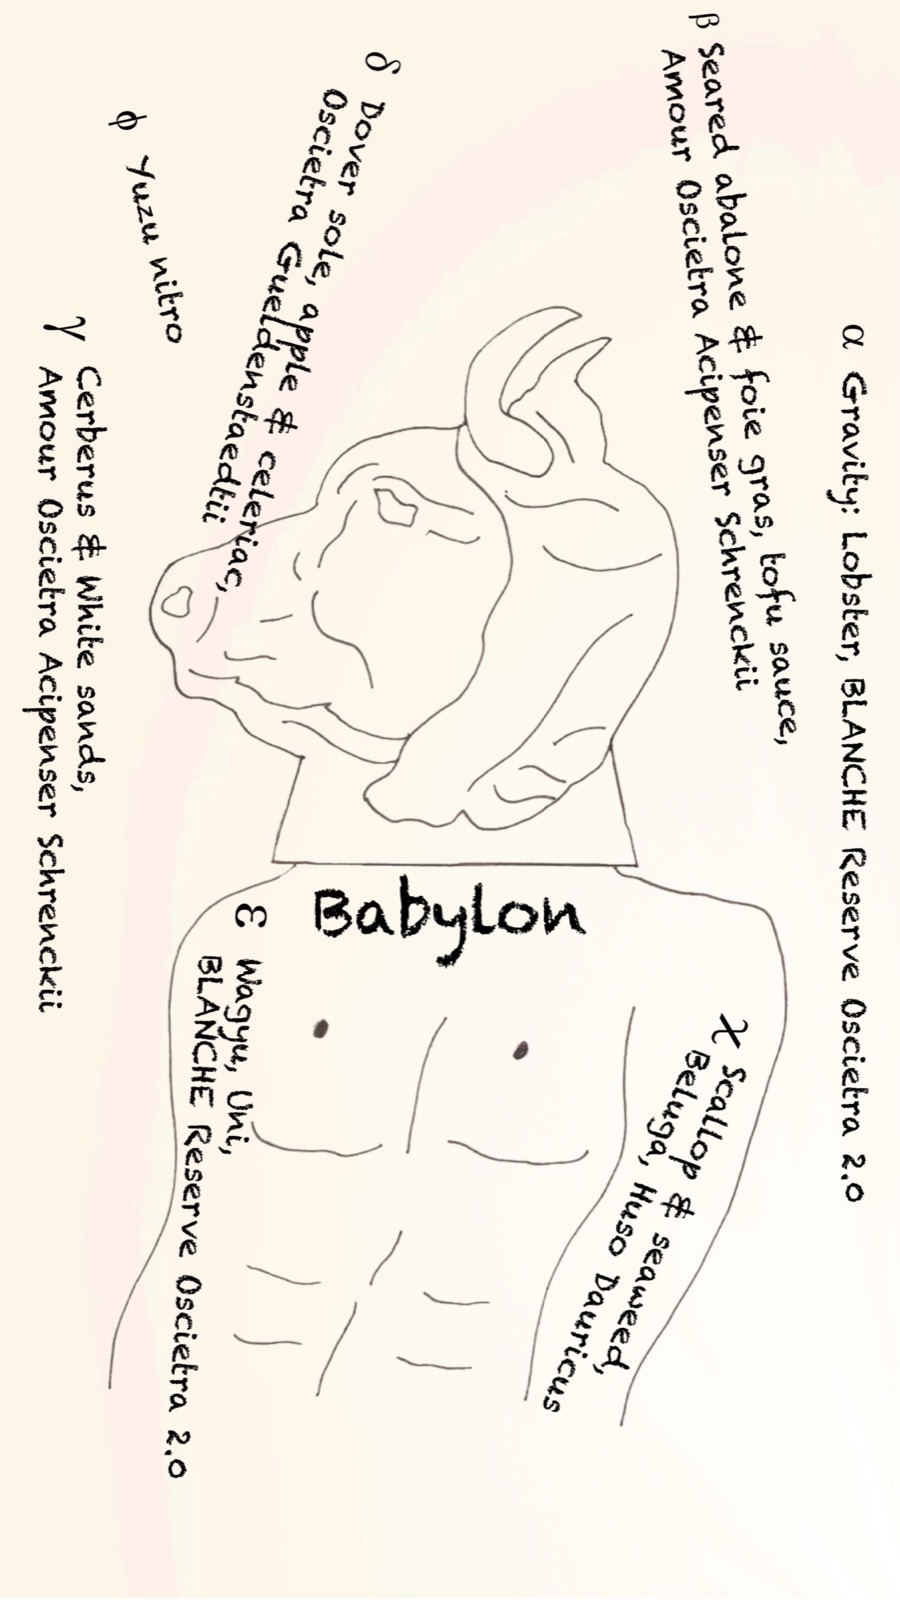 α Gravity: Lobster, BLANCHE Reserve Oscietra 2.0
β Seared abalone & foie gras, tofu sauce,
Amour Oscietra Acipenser Schrenckii
χ Scallop & seaweed,
Beluga, Huso Dauricus
δ Dover sole, apple & celeriac,
Oscietra Gueldenstaedtii
ε Wagyu, Uni,
BLANCHE Reserve Oscietra 2.0
ϕ Yuzu nitro
γ Cerberus & White sands,
Amour Oscietra Acipenser Schrenckii
Babylon